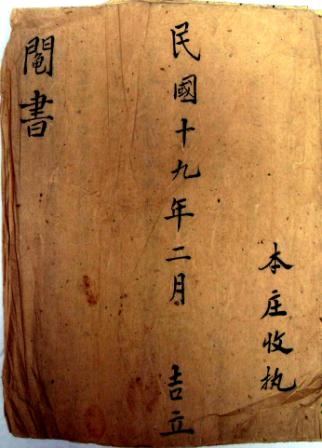 本庄收执
民國十九年二月 吉立
鬮書